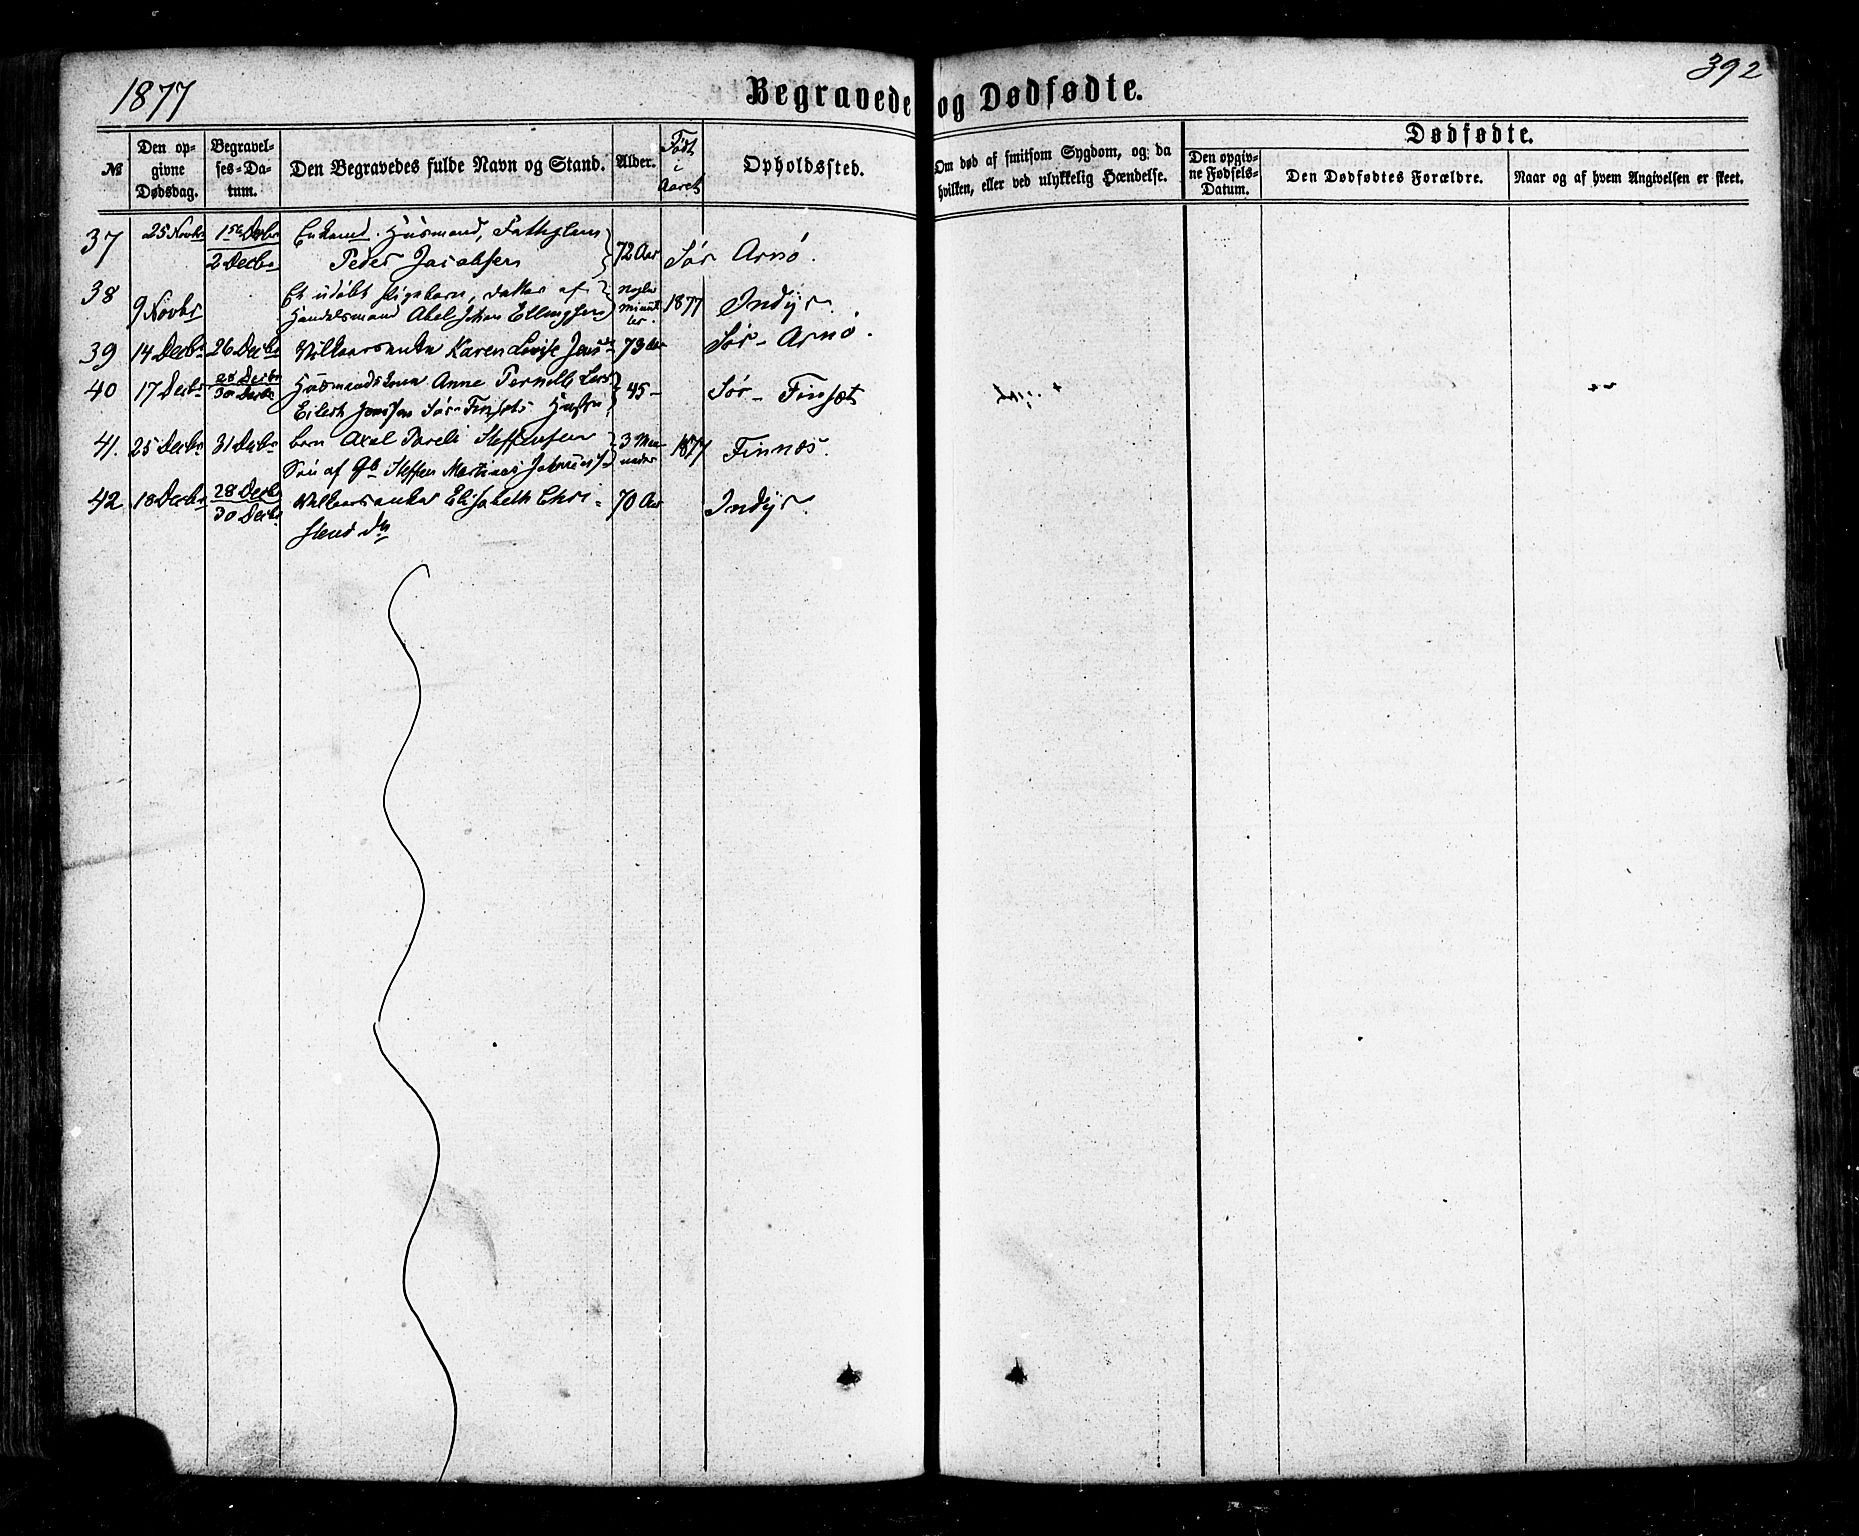 1877
Begravede og Dødfødte.
392
№
Den op-
givne
Dødsdag.
Begravel-
ses-Da-
tum.
Den Begravedes fulde Navn og Stand.
Alder.
Født
i
Aaret
Opholdssted.
Om død af smitsom Sygdom, og da
hvilken, eller ved ulykkelig Hændelse.
Dødfødte.
Den opgiv-
ne Fødsels-
Datum.
Den Dødfødtes Forældre.
Naar og af hvem Angivelsen er skeet.
37 25 Novbr 1ste Decbr Enkemd. Husmand, Fattiglem
2 Decbr Peder Jacobsen 72 Aar Sør Arnø.
38 9 Novbr Et udøbt Pigebarn, datter af nogle 1877 Indyr.
Handelsmand Axel Johan Ellingsen minut
ter.
39 14 Decbr 26 Decbr Vilkaarsenke Karen Lovise Jens 73 Aar Sør-Arnø.
40 17 Decbr 28 Decbr Husmandskone Anne Pernelle Lars 45 - Sør-Finset
30 Decbr Eilert Jensen Sør-Finsets Hustru
41. 25 Decbr 31 Decbr barn Axel Pareli Steffensen 3 Maa 1877 Finnæs.
Søn af Steffen Martinus neder
42 18 Decbr 28 Decbr Vilkaarsenke Elisabeth Chri- 70 Aar Indyr.
30 Decbr stensd.